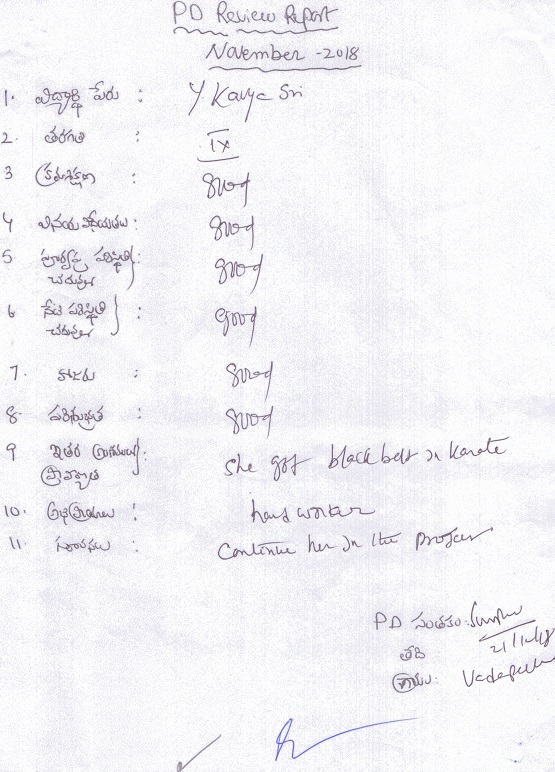 PD Review Report
November -2018
1. విద్యార్థి పేరు : Y Kavya Sri
2. తరగతి : IX
3 క్రమశిక్షణ : good
4 వినయ విధేయతలు: good
5 పూర్వపు పరిస్థితి : good
చదువులో
6 నేటి పరిస్థితి : good
చదువులో
7. హాజరు : good
8. పరిశుభ్రత : good
9 ఇతర అంశములు : She got black belt in Karate
ప్రావీణ్యత
10. అభిప్రాయాలు : hard worker
11. సూచనలు : Continue her in the
PD సంతకం:
21/11/18
తేది
గ్రామం: